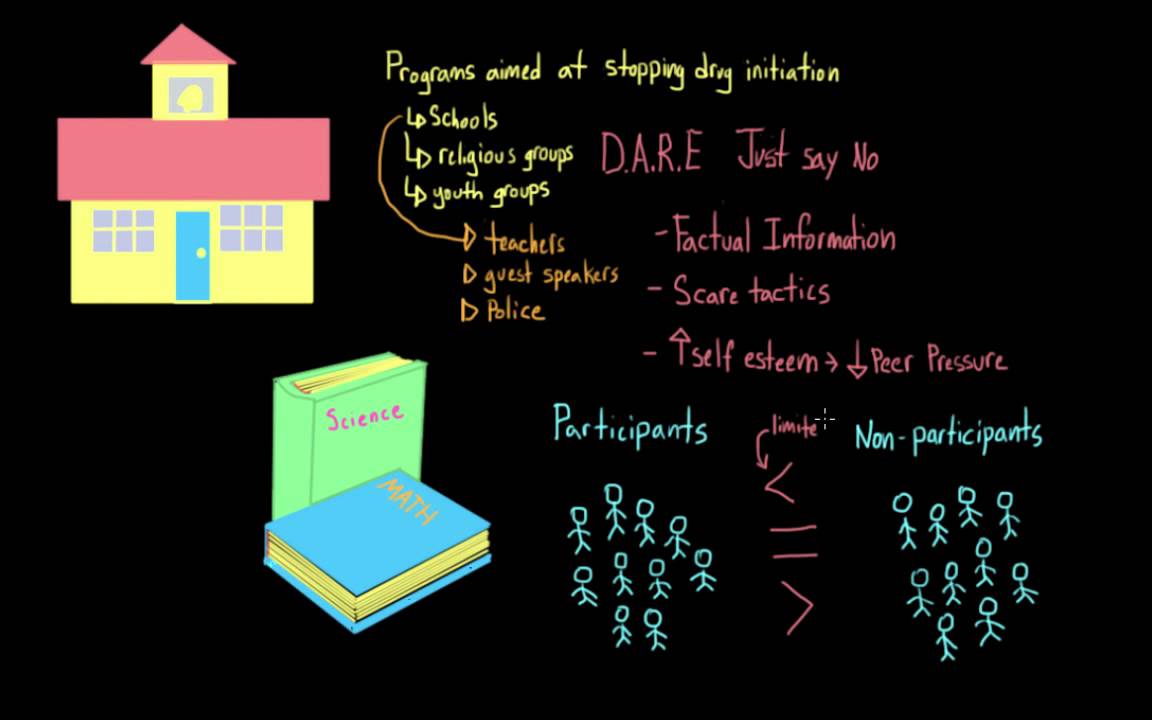 Programs aimed at stopping drug initiation
Schools
religious groups
youth groups
D.A.R.E Just say No
teachers
guest speakers
Police
- Factual Information
- Scare tactics
- ↑ self esteem → ↓ Peer Pressure
Science
MATH
Participants
limite
Non-participants
<
=
>